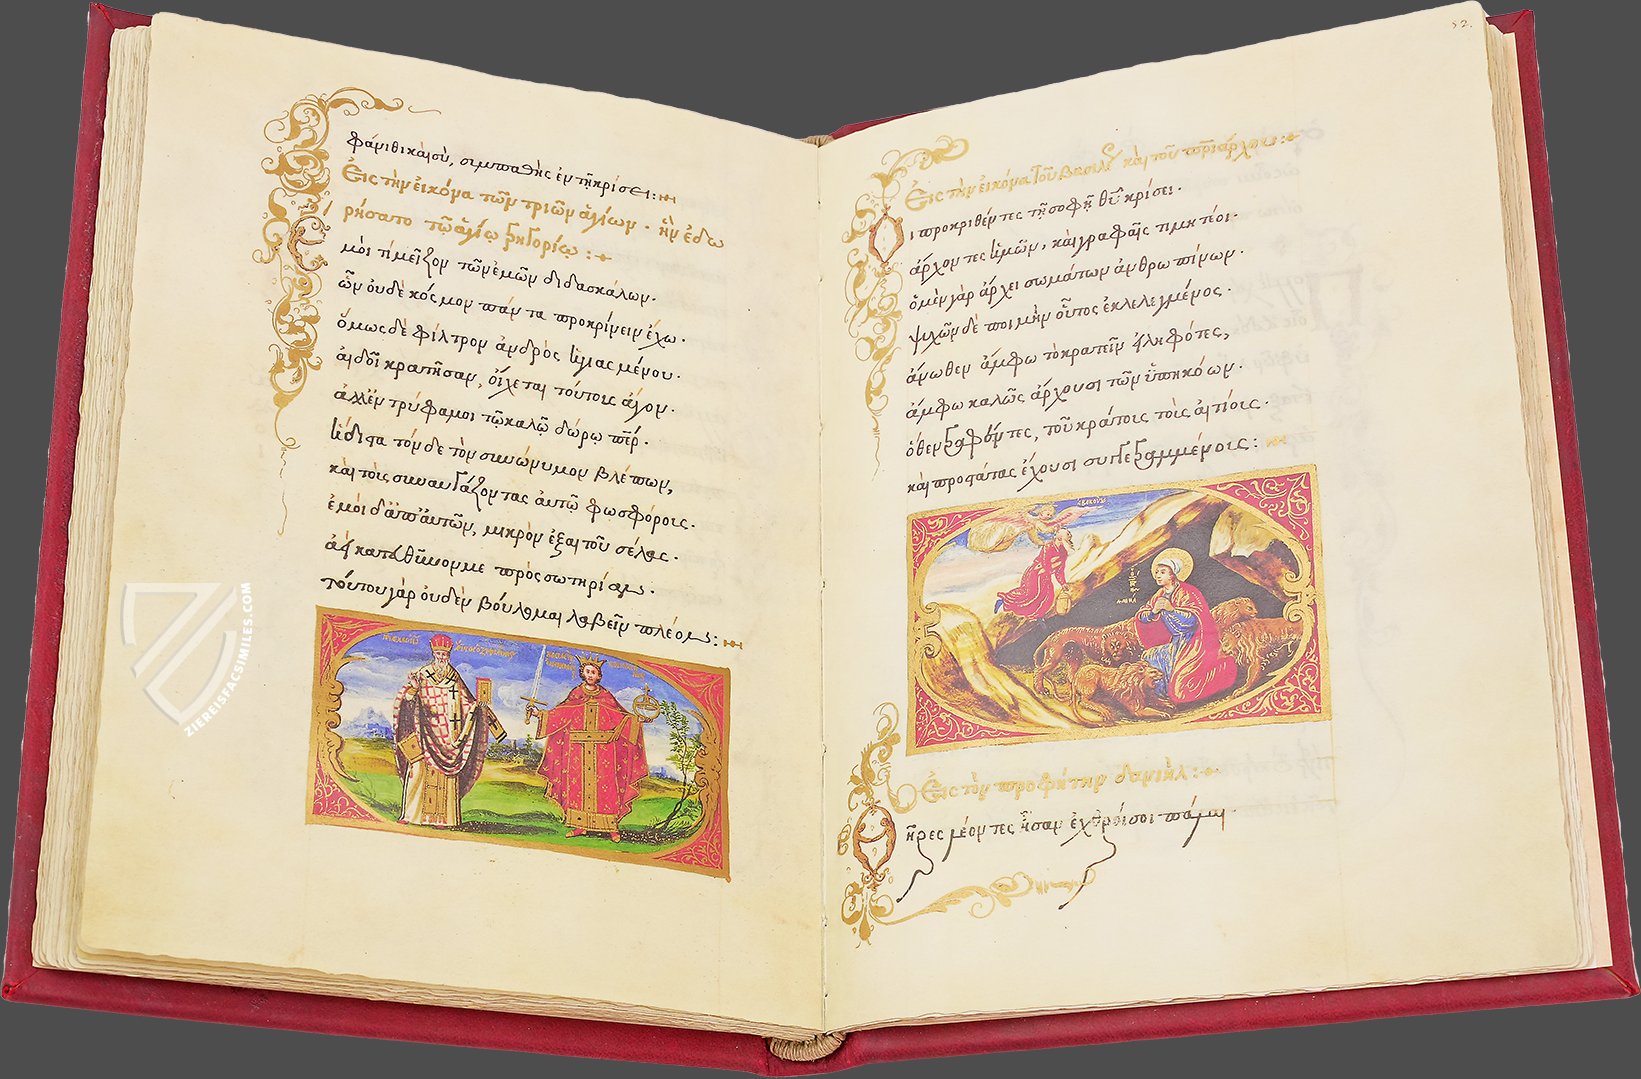 φάνιθι καὶ σὺ, συμπαθὴς ἐν τῇ κρίσει:
Εἰς τὴν εἰκόνα τῶν τριῶν ἁγίων · ἣν ἐδω
ρήσατο τῷ ἁγίῳ γρηγορίῳ :
μὸι τί μεῖζον τῶν ἐμῶν διδασκάλων·
ὧν ὀυδὲ κόσμον πάντα προκρίνειν ἔχω·
ὅμως δὲ φίλτρον ἀνδρὸς ἡγιασμένου·
ἀιδοῖ κρατῆσαν, ὄιχεται τούτοις ἄγον·
τόνδε τὸν συνώνυμον βλέπων,
καὶ τοὺς συναυγάζοντας ἀυτῷ φωσφόροις·
ἐμὸι δ' ἀπ' ἀυτῶν, μικρὸν ἐξαιτοῦ σέλας·
πρὸς σωτηρίαν·
τούτου γὰρ ὀυδὲν βούλομαι λαβεῖν πλέον:
52.
Εἰς τὴν εἰκόνα τοῦ βασιλέ καὶ τοῦ πριάρχου:
Οι προκριθέντες τῇ σοφῇ θῦ κρίσει·
ἄρχοντες ἡμῶν, καὶ γραφαῖς τιμητέοι·
ὁ μὲν γὰρ ἄρχει σωμάτων ἀνθρωπίνων·
ψυχῶν δὲ ποιμὴν οὗτος ἐκλελεγμένος·
ἄνωθεν ἄμφω τὸ κρατεῖν ἐιληφότες,
ἄμφω καλῶς ἄρχουσι τῶν ὑπηκόων·
ὅθεν γραφέντες, τοῦ κράτους τοῖς ἀιτίοις·
καὶ προστάτας ἔχουσι συγγεγραμμένοις:
Εἰς τὸν προφήτην δανιὴλ:
Θῆρες λέοντες ἦσαν ἐχθροί σοι πάλαι·
ZIEREISFACSIMILES.COM